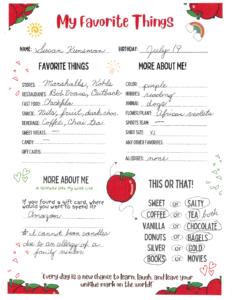 My Favorite Things
NAME: Susan Kinsman BIRTHDAY: July 19
FAVORITE THINGS
STORES: Marshalls, Kohls
RESTAURANTS: Bob Evans, Outback
FAST FOOD: Chickfila
SNACK: Nuts, fruit, dark choc.
BEVERAGE: Coffee, Chai Tea
SWEET TREATS: —
CANDY: —
GIFT CARDS:
MORE ABOUT ME!
COLOR: purple
HOBBIES: reading
ANIMAL: dogs
FLOWER/PLANT: African violets
SPORTS TEAM: —
SHIRT SIZE: XL
ANY OTHER FAVORITES:
ALLERGIES: none
MORE ABOUT ME
If you found a gift card, where
would you want to spend it?
Amazon
* I cannot burn candles
due to an allergy of a
family member
THIS OR THAT!
SWEET or SALTY
COFFEE or TEA both
VANILLA or CHOCOLATE
DONUTS or BAGELS
SILVER or GOLD
BOOKS or MOVIES
Every day is a new chance to learn, laugh, and leave your
unique mark on the world!